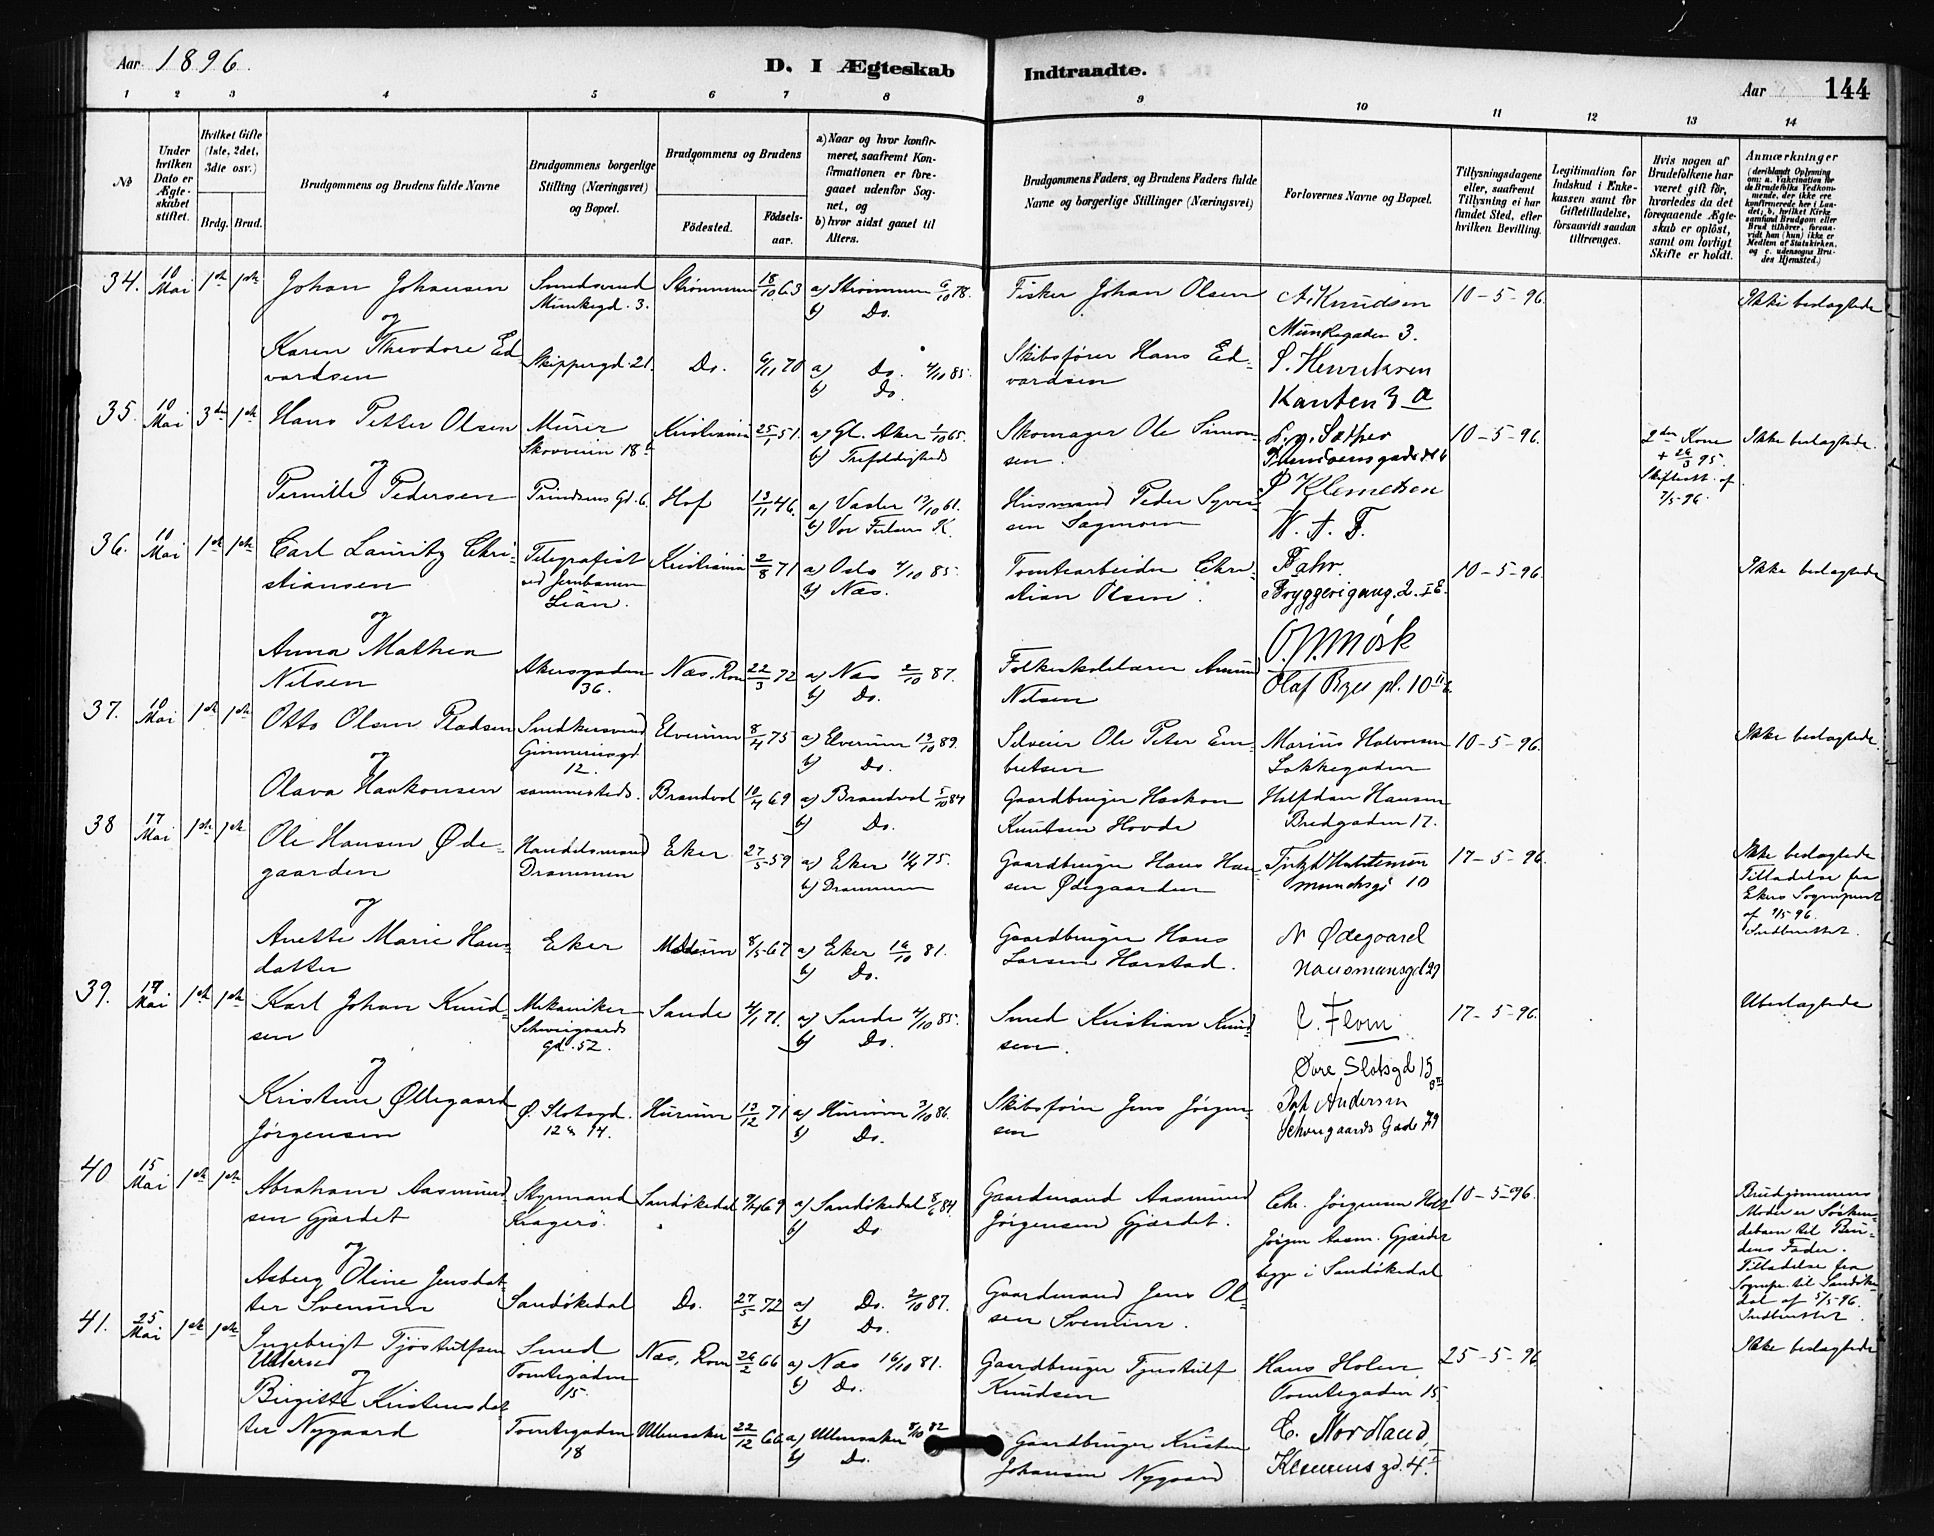 Aar 1896.
D. I Ægteskab Indtraadte.
Aar 144
1 2 3 4 5 6 7 8 9 10 11 12 13 14
№
Under hvilken Dato er Ægteskabet stiftet.
Hvilket Gifte (1ste, 2det, 3die osv.)
Brdg. Brud.
Brudgommens og Brudens fulde Navne
Brudgommens borgerlige Stilling (Næringsvei) og Bopæl.
Brudgommens og Brudens
Fødested. Fødselsaar.
a) Naar og hvor konfirmeret, saafremt Konfirmationen er foregaaet udenfor Sognet, og
b) hvor sidst gaaet til Alters.
Brudgommens Faders, og Brudens Faders fulde Navne og borgerlige Stillinger (Næringsvei)
Forlovernes Navne og Bopæl.
Tillysningsdagene eller, saafremt Tillysning ei har fundet Sted, efter hvilken Bevilling.
Legitimation for Indskud i Enkekassen samt for Giftetilladelse, forsaavidt saadan tiltrænges.
Hvis nogen af Brudefolkene har været gift før, hvorledes da det foregaaende Ægteskab er opløst, samt om lovligt Skifte er holdt.
Anmærkninger (deriblandt Oplysning om: a. Vakcination for de Brudefolks Vedkommende, der ikke ere konfirmerede her i Landet; b. hvilket Kirkesamfund Brudgom eller Brud tilhører, forsaavidt han (hun) ikke er Medlem af Statskirken, og c. udensogns Brudes Hjemsted.)
34. 10 Mai 1ste 1ste Johan Johansen Smedsvend Munkegd. 3. Strømmen 18/10 63 a) Strømmen 6/10 78. b) Do. Fisker Johan Olsen A. Knudsen Munkegaden 3. 10-5-96. Ikke beslægtede
og
Karen Theodore Edvardsen Skippergd. 21. Do. 6/11 70 a) Do. 4/10 85. b) Do. Skibsfører Hans Edvardsen S. Henriksen Kanten 3 a
35. 10 Mai 3die 1ste Hans Petter Olsen Murer Skovveien 18 Kristiania 25/1 51. a) Gl. Aker 1/10 65. b) Trefoldigheds Skomager Ole Simonsen. 10-5-96. 2den Kone + 26/3 95. Skifteatt. af 7/5-96. Ikke beslægtede.
og
Pernille Pedersen Prindsens Gd. 6. Hof 13/11 46. a) Vaaler 17/10 61. b) Vor Frelsers K. Husmand Peder Syversen Sagmoen P Klemetsen W. A. F.
36. 10 Mai 1ste 1ste Carl Lauritz Christiansen Telegrafist ved Jernbanen Lian. Kristiania 2/8 71 a) Oslo 4/10 85. b) Næs. Tomtearbeider Christian Olsen. Bryggerigang. 2. 10-5-96. Ikke beslægtede
og
Anna Mathea Nilsen Akersgaden 36. Næs. Rom 22/3 72 a) Næs 2/10 87. b) Do. Folkeskolelærer Amund Nilsen Olaf Ryes pl. 10
37. 10 Mai 1ste 1ste Otto Olsen Pladsen Snedkersvend 12. Elverum 8/4 75 a) Elverum 13/10 89. b) Do. Selveier Ole Peter Embretsen Marius Halvorsen Lakkegaden 10-5-96. Ikke beslægtede.
og
Olava Haakonsen sammesteds. Brandvol 10/4 69 a) Brandvol 5/10 84 b) Do. Gaardbruger Haakon Knutsen Hovde Halfdan Hansen Bredgaden 17.
38 17 Mai 1ste 1ste Ole Hansen Ødegaarden Handelsmand Drammen Eker 27/5 59 a) Eker 11/4 75. b) Drammen Gaardbruger Hans Hansen Ødegaarden 10 17-5-96. Ikke beslægtede Tilladelse fra Ekers Sognepræst af 9/5 96. Indberettet.
og
Anette Marie Hansdatter Eker Modum 8/5 67 a) Eker 16/10 81. b) Do. Gaardbruger Hans Larsen Harstad. N Ødegaard Hausmansgd 29
39. 17 Mai 1ste 1ste Karl Johan Knudsen Mekaniker Schweigaards gd. 52. Sande 4/1 71. a) Sande 4/10 85. b) Do. Smed Kristian Knudsen. C. Flom Øvre Slotsgd 15 17-5-96. Ubeslægtede
og
Kristine Ødegaard Jørgensen Ø. Slotsgd. 12 & 14. Hurum 13/12 71 a) Hurum 3/10 86. b) Do. Skibsfører Jens Jørgensen Joh Andersen Schweigaards Gade 79
40 15 Mai 1ste 1ste Abraham Aasmundsen Gjærdet Styrmand Kragerø. Sandøkedal 69 a) Sandøkedal 8/6 84. b) Do Gaardmand Aasmund Jørgensen Gjærdet. Chr. Jørgensen Jørgen Aasm. Gjærdet begge i Sandøkedal 10-5-96. Brudgommens Moder er Søskendebarn til Brudens Fader. Tilladelse fra Sognepr. til Sandøkedal af 5/5-96. Indberettet.
og
Asberg Oline Jensdatter Svenum Sandøkedal Do. 27/5 72 a) Do. 2/10 87. b) Do. Gaardmand Jens Olsen Svenum.
41. 25 Mai 1ste 1ste Ingebrigt Tjøstulfsen Smed Tomtegaden 15. Næs, Rom 26/2 66 a) Næs 16/10 81. b) Do. Gaardbruger Tjøstulf Knudsen Hans Holm Tomtegaden 15 25-5-96 Ikke beslægtede
og
Birgitte Kristensdatter Nygaard Tomtegaden 18 Ullensaker 22/12 66 a) Ullensaker 8/10 82 b) Do. Gaardbruger Kristen Johansen Nygaard C. Nordland, Klemmsgd. 4.